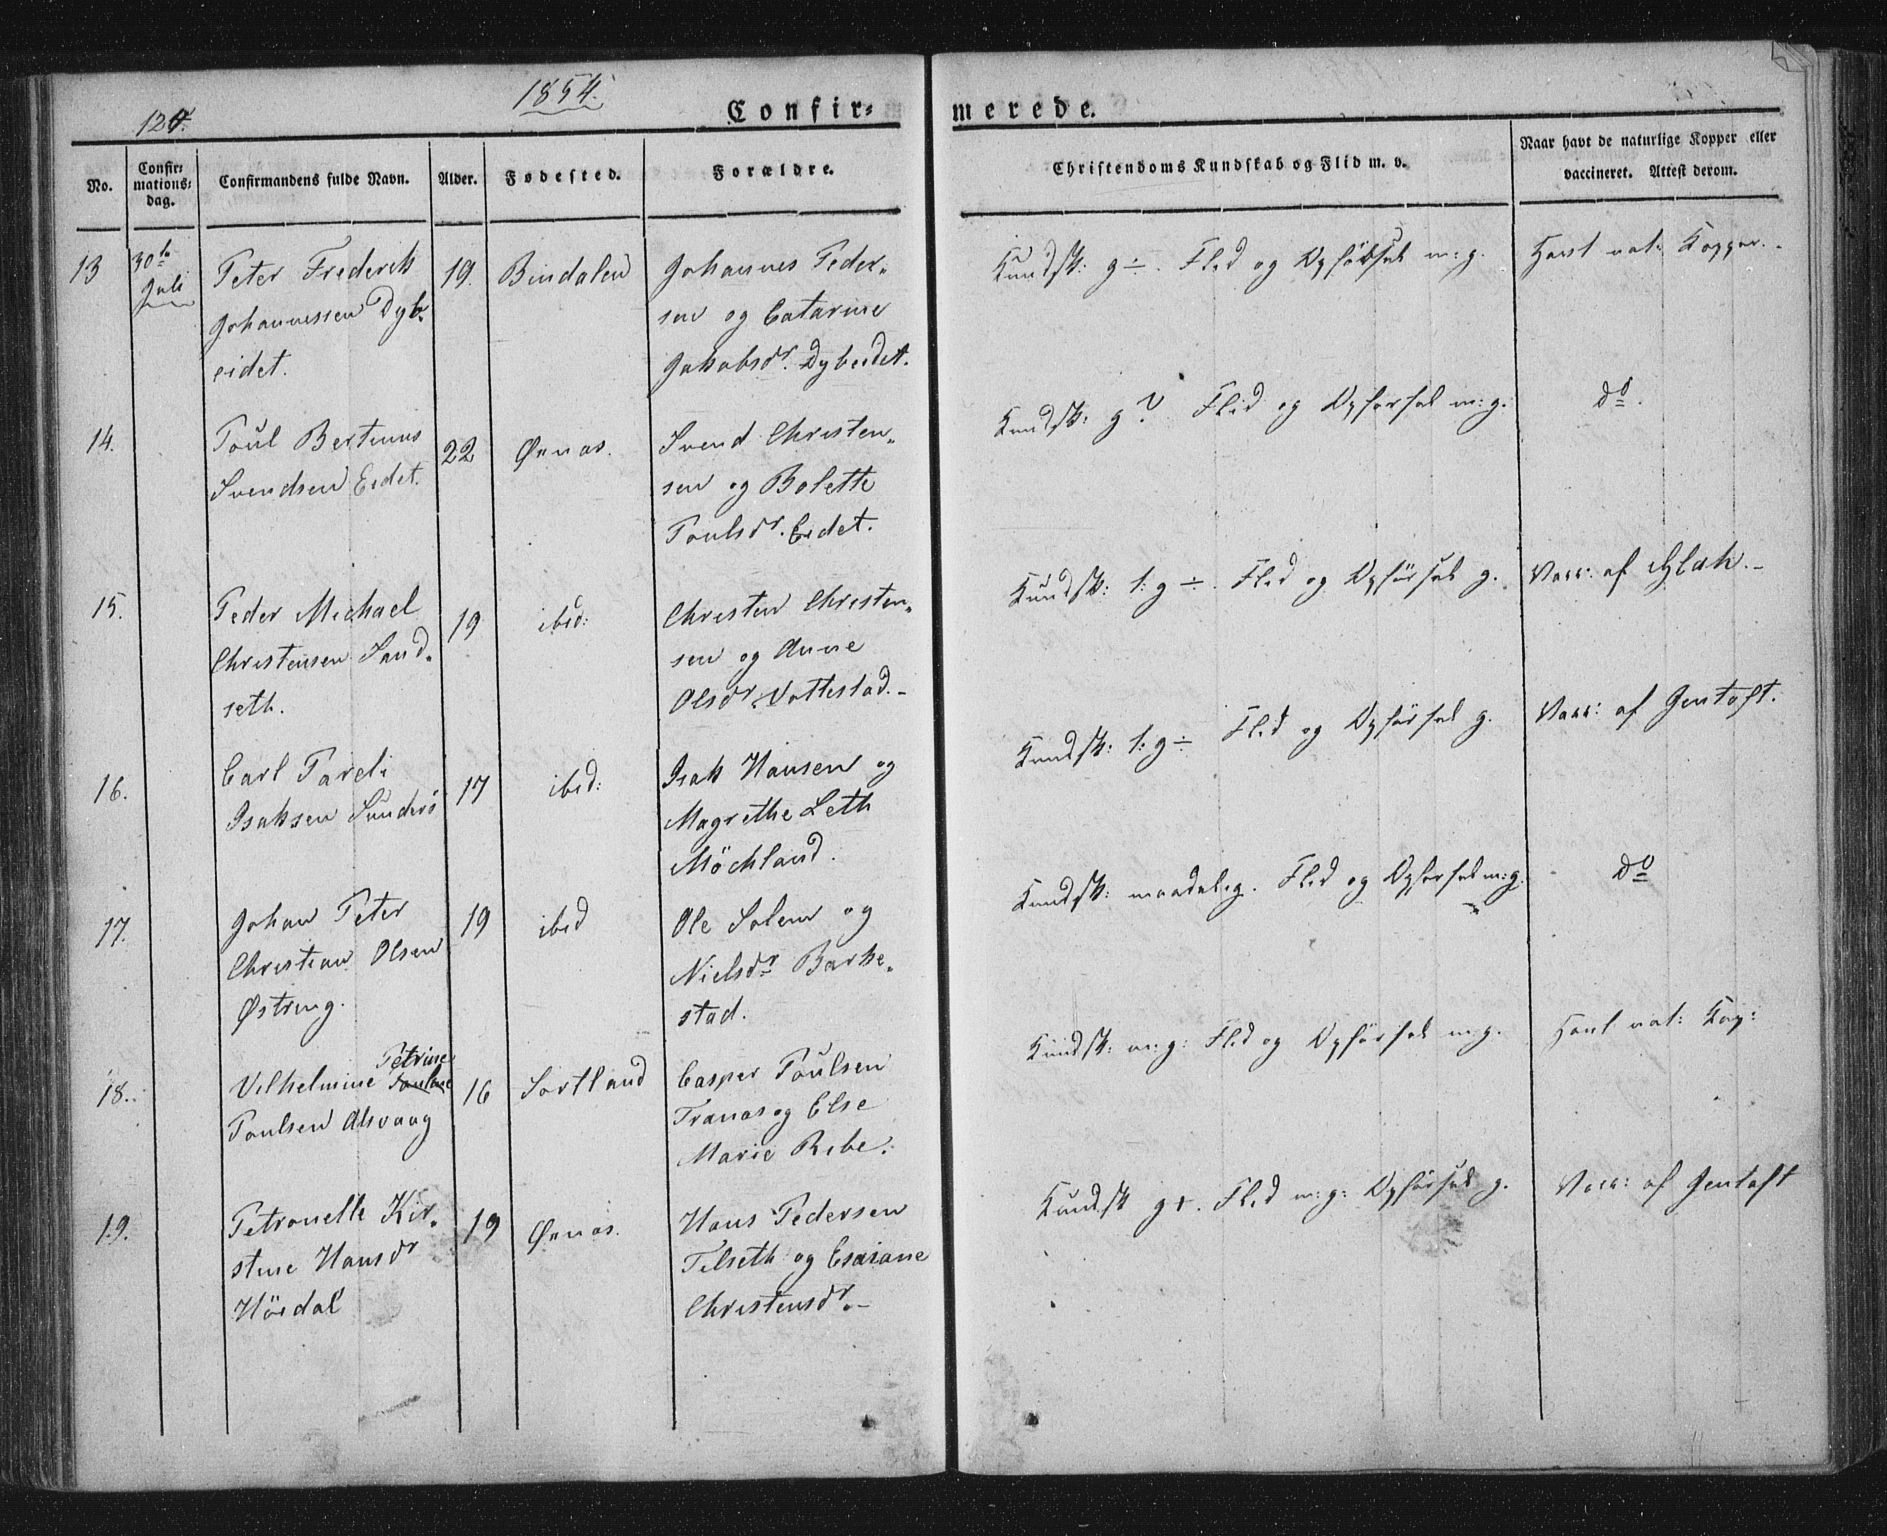 1854.
120.
Confir- merede.
No.
Confir-
mations-
dag.
Confirmandens fulde Navn.
Alder.
Fødested.
Forældre.
Christendoms Kundskab og Flid m. v.
Naar havt de naturlige Kopper eller
vaccineret. Attest derom.
13
30te
Juli
Peter Frederik
Johannessen Dyb-
eidet.
19.
Bindalen
Johannes Peder-
sen og Catarine
Jakobsdr. Dybeidet.
Kundsk: g ÷. Flid og Opførsel m: g.
Havt nat: Kopper.
14.
Poul Bertinus
Svendsen Eidet.
22
Øxnæs.
Svend Christen-
sen og Bolette
Poulsdr. Eidet.
Kundsk: g ? Flid og Opførsel m: g.
Do.
15.
Peder Michael
Christensen Sand-
seth.
19
ibid:
Christen Christen-
sen og Anne
Olsdr Vottestad.-
Kundsk: t: g ÷. Flid og Opførsel g.
Vacc: af
16.
Carl Pareli
Isaksen Sunderö
17
ibid:
Isak Hansen og
Magrethe Leth
Möchland.
Kundsk: t: g ÷ Flid og Opførsel g.
Vacc: af Gentoft.
17.
Johan Peter
Christian Olsen
Østring.
19
ibid
Ole Solem og
Nielsdr Barke-
stad.
Kundsk: maadelig. Flid og Opførsel m: g.
Do
18.
Petrine
Vilhelmine Pauline
Poulsen Alsvaag
16
Sortland
Casper Poulsen
Tranas og Else
Marie Ribe.
Kundsk: m: g: Flid og Opførsel m: g.
Havt nat: Kop:
19.
Petronelle Kir-
stine Hansdr
Höidal
19
Øxnæs.
Hans Pedersen
Tilseth og Esaiane
Christensdr.-
Kundsk g+. Flid m: g: Opførsel g.
Vacc: af Gentoft